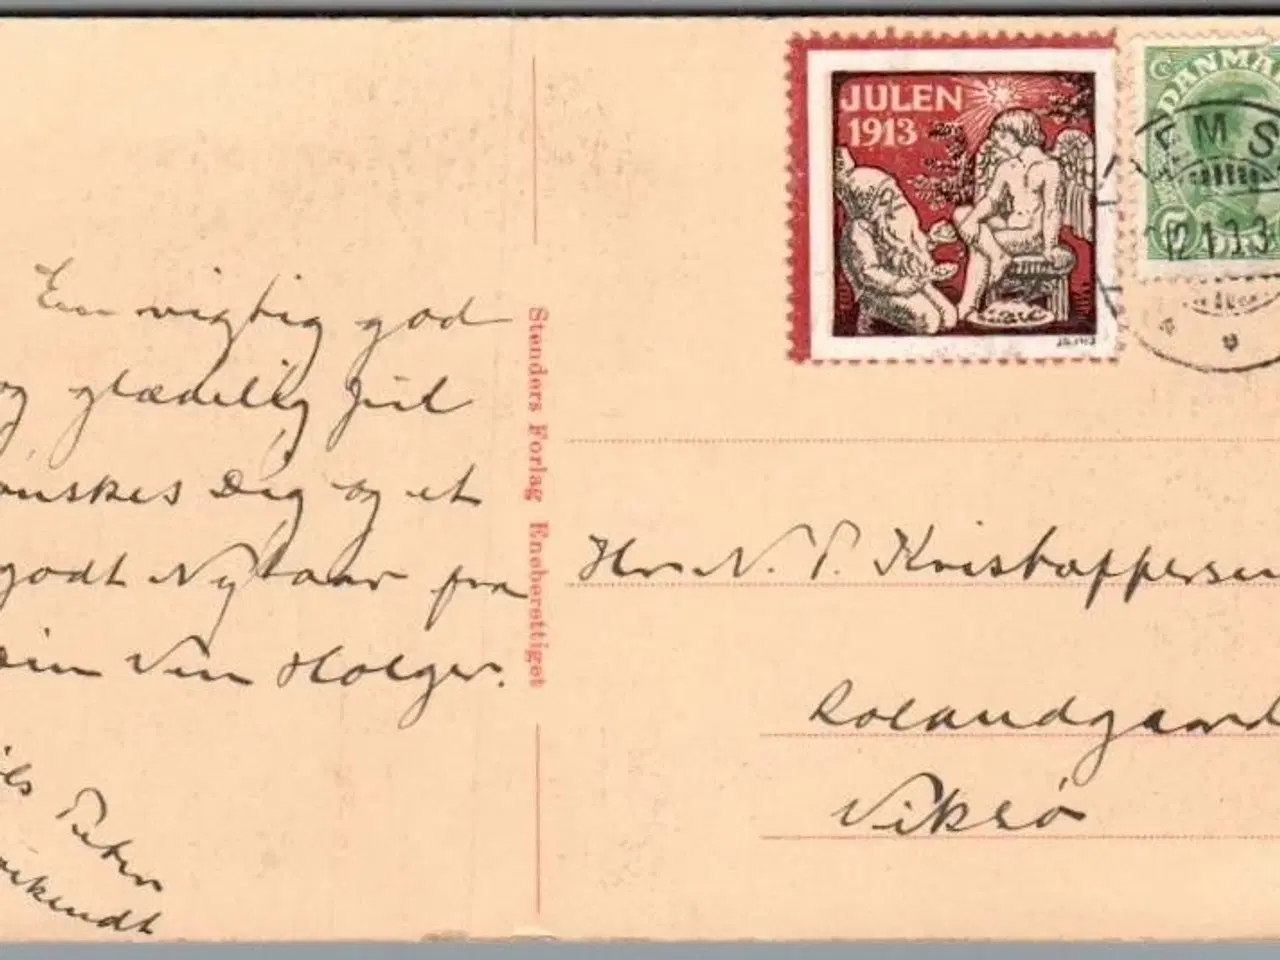 JULEN
1913
DANMA
5
ØRE
EMS
En rigtig god
og glædelig Jul
ønskes Dig og et
godt Nytaar fra
Din Ven Holger.
Peter
Stenders Forlag Eneberettiget
Hr N. P. Kristoffersen
Rolandgaard
Viksø